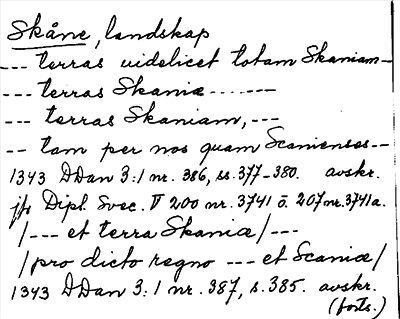 Skåne, landskap
--- terras uidelicet totam Skaniam -
--- terras Skaniæ -------
--- terras Skaniam, ---
-- tam per nos quam Scanienses --
1343 DDan 3:1 nr. 386, ss. 377-380. avskr.
jfr Dipl. Svec. V 200 nr. 3741 o. 207 nr. 3741a.
/--- et terra Skaniæ/---
/pro dicto regno --- et Scaniæ/
1343 DDan 3:1 nr. 387, s. 385. avskr.
(forts.)